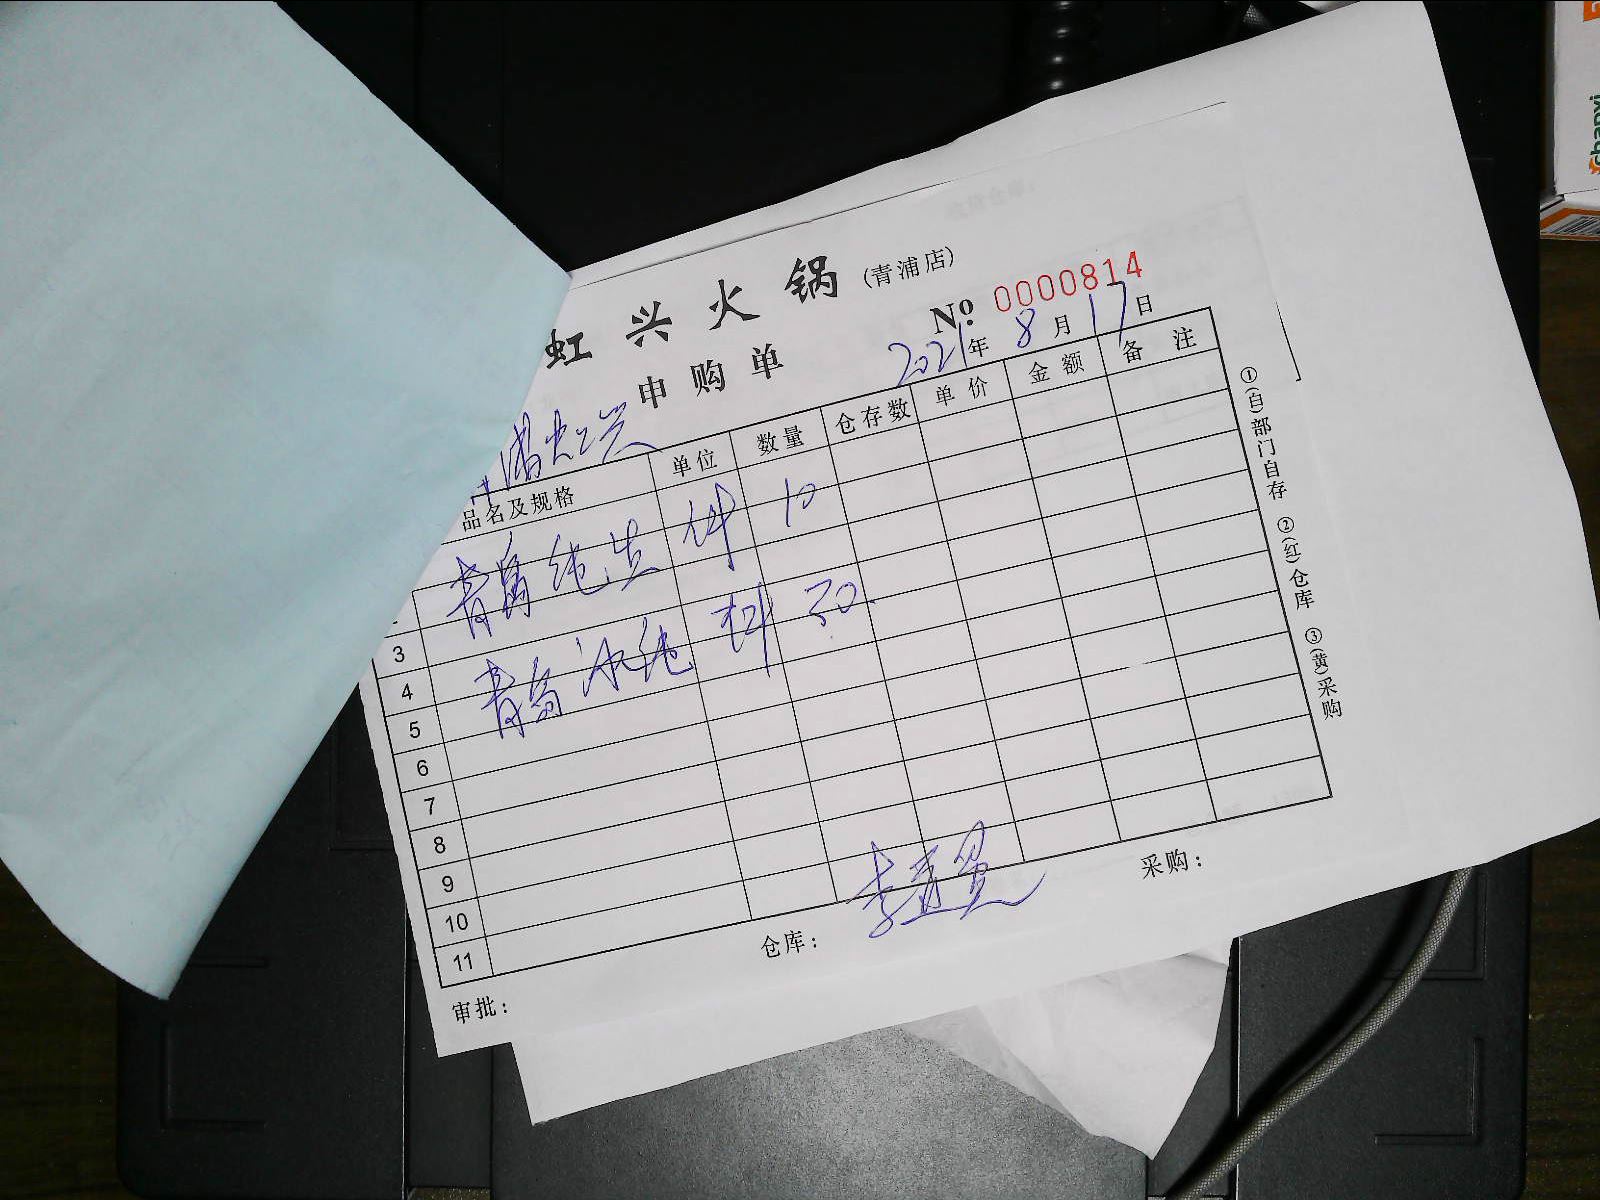 虹兴火锅(青浦店)
申购单
No: 0000814
2021年8月17日
浦虹兴
品名及规格 单位 数量 仓存数 单价 金额 备注
青岛纯生 件 10
3
青岛冰纯 件 30
4
5
6
7
8
9
10
11
审批: 仓库: 采购:
①(白)部门自存 ②(红)仓库 ③(黄)采购
chanyi